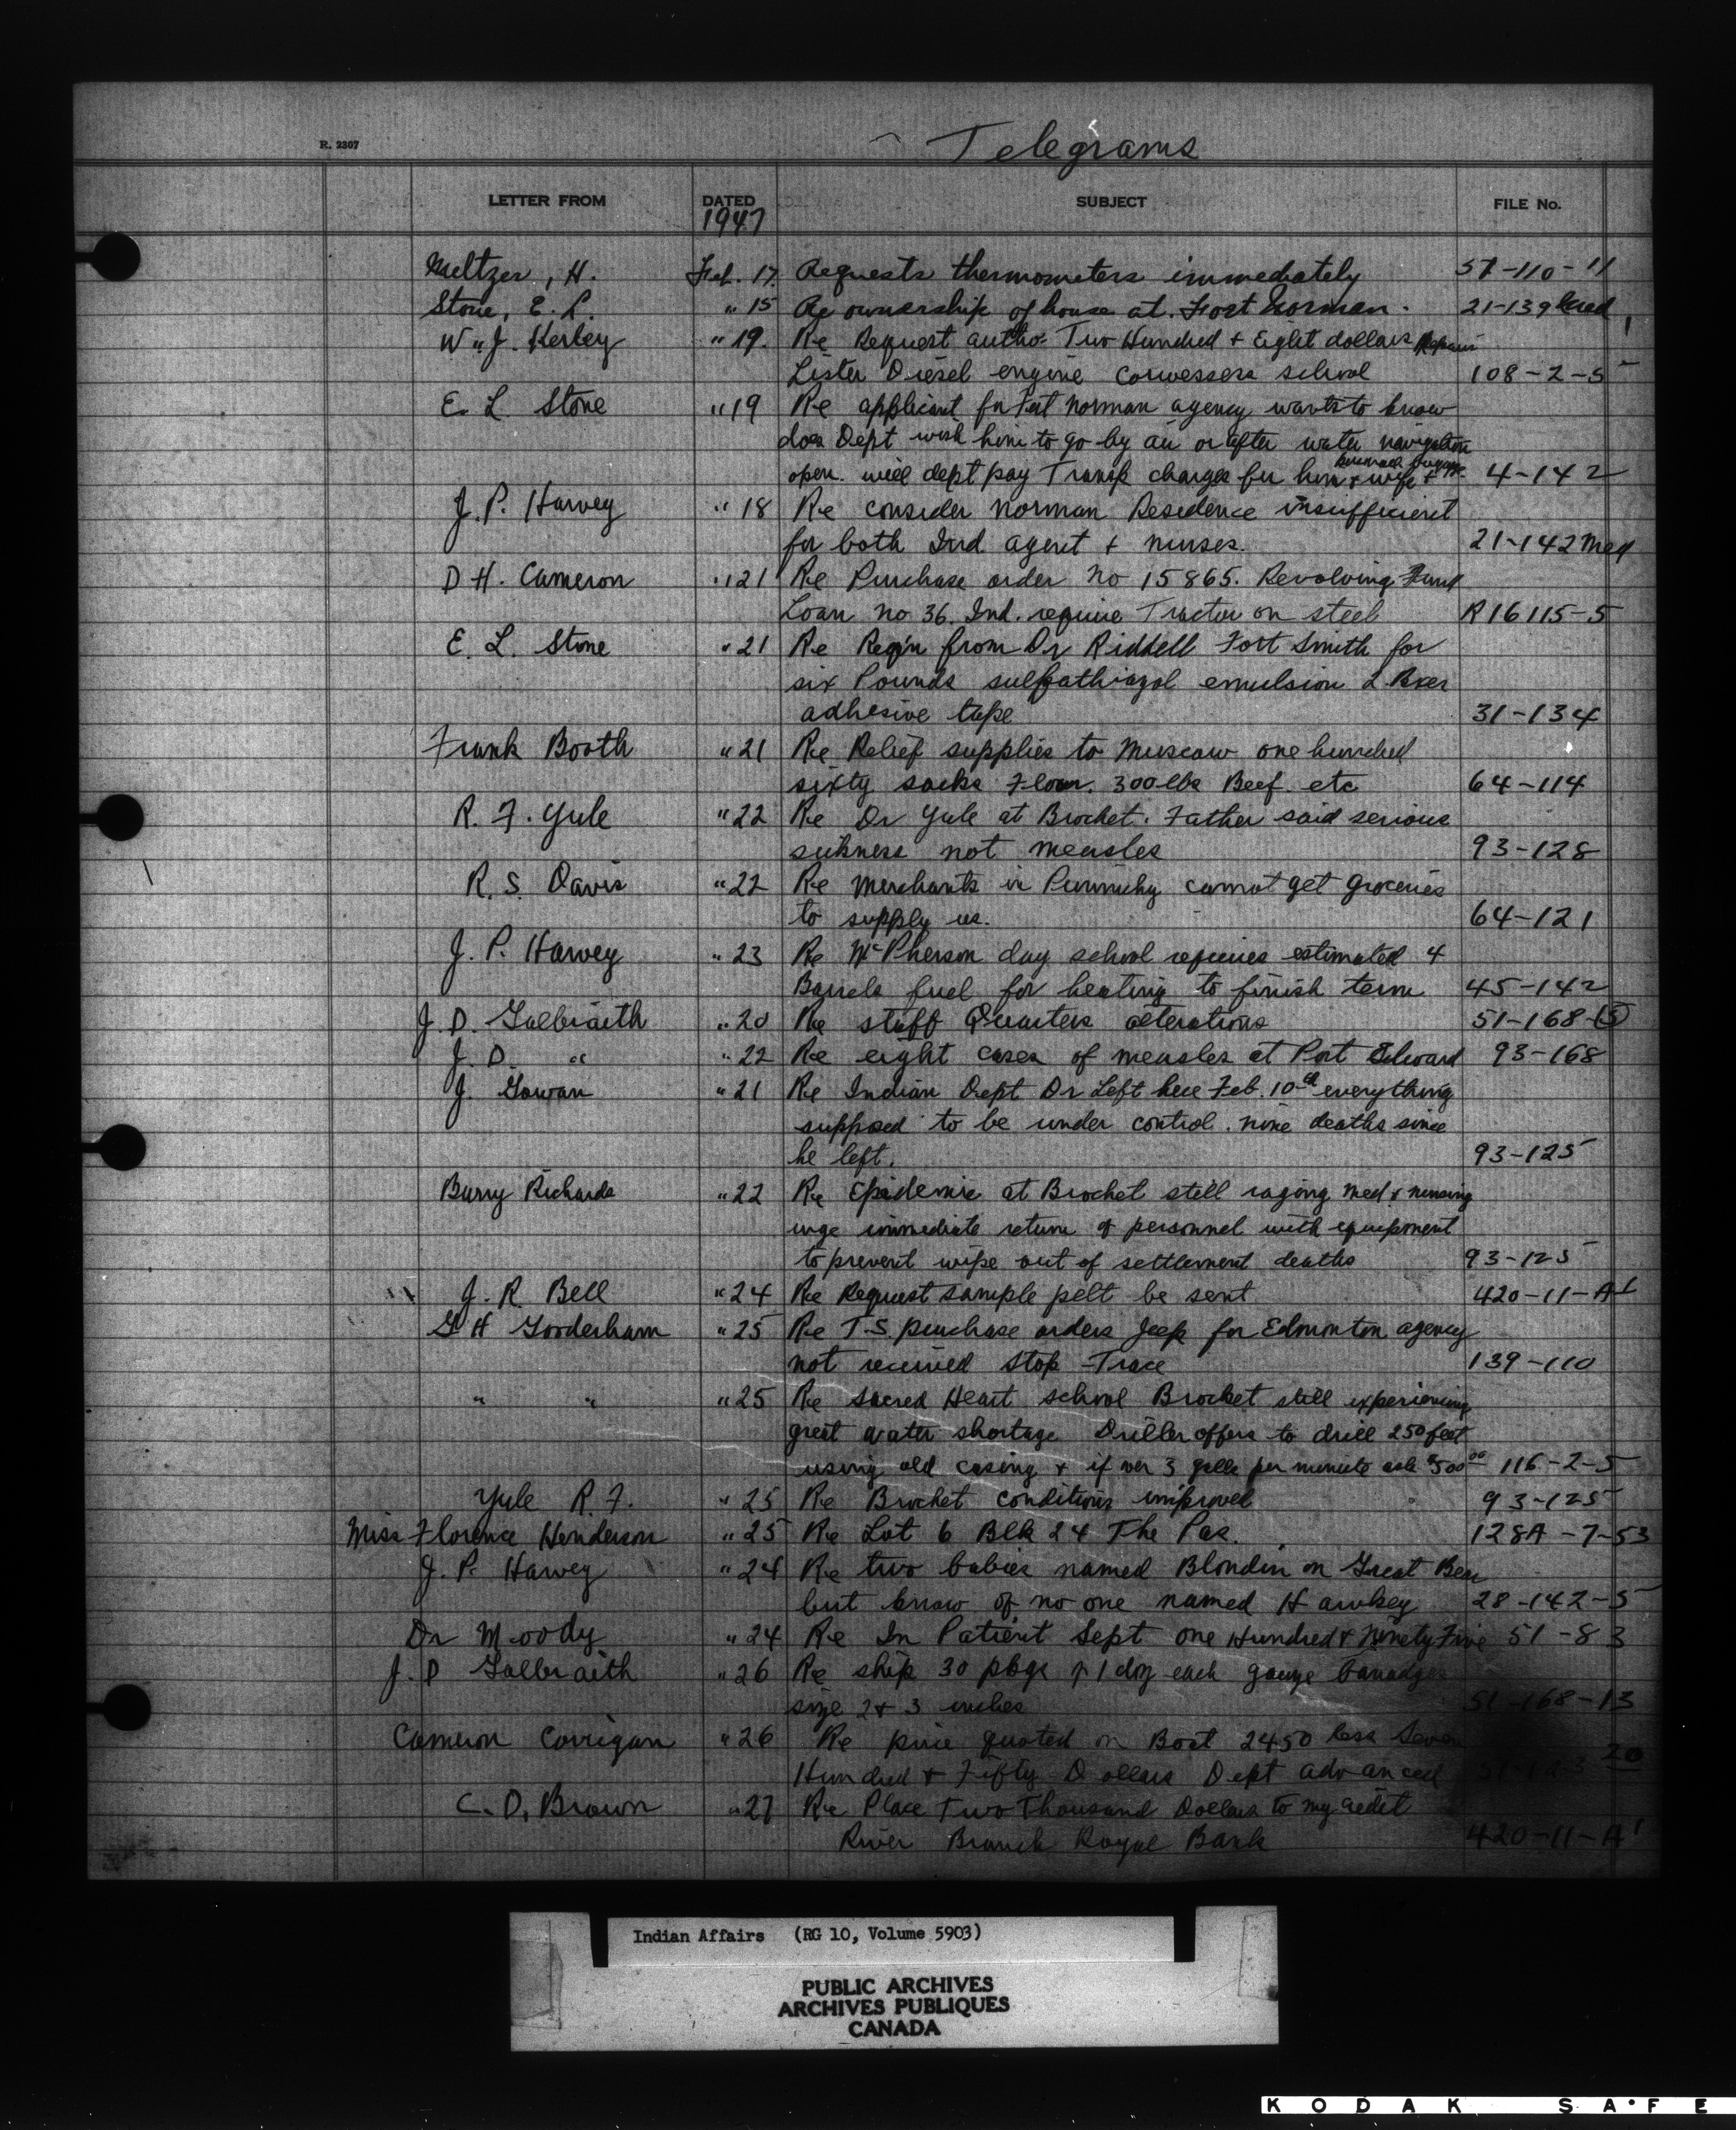 Telegrams
R. 2307
LETTER FROM DATED SUBJECT FILE No.
1947
Meltzer, H. Feb. 17. Requests thermometers immediately 51-110-11
Stone, E. L. " 15 Re ownership of house at Fort Norman. 21-139 Med
W. J. Kerley " 19. Re Request autho. Two Hundred & Eight dollars Repairs
Lister Diesel engine school 108-2-5
E. L. Stone " 19 Re applicant for Fort Norman agency wants to know
does Dept wish him to go by air or after water navigation
open. will dept pay Transp charges for him & wife & 4-142
J. P. Harvey " 18 Re consider Norman Residence insufficient
for both Ind agent & nurses. 21-142 Med
D H. Cameron " 21 Re Purchase order No 15865. Revolving Fund
Loan no 36. Ind. require Tractor on steel R16115-5
E. L. Stone " 21 Re Req'n from Dr Riddell Fort Smith for
six Pounds sulfathiazol emulsion 2 Bxes
adhesive tape 31-134
Frank Booth " 21 Re Relief supplies to Muscow one hundred
sixty sacks Flour. 300 lbs Beef etc 64-114
R. F. Yule " 22 Re Dr Yule at Brochet. Father said serious
sickness not measles 93-128
R. S. Davis " 22 Re Merchants in Punnichy cannot get groceries
to supply us. 64-121
J. P. Harvey " 23 Re McPherson day school requires estimated 4
Barrels fuel for heating to finish term 45-142
J. D. Galbraith " 20 Re staff Quarters alterations 51-168-(5)
J. D. " " 22 Re eight cases of measles at Port Edward 93-168
J. Gowan " 21 Re Indian Dept Dr Left here Feb. 10th everything
supposed to be under control. nine deaths since
he left. 93-125
Barry Richards " 22 Re Epidemic at Brochet still raging Med & nursing
urge immediate return of personnel with equipment
to prevent wipe out of settlement deaths 93-125
J. R. Bell " 24 Re Request sample pelt be sent 420-11-A1
G H Gooderham " 25 Re T.S. purchase orders Jeep for Edmonton agency
not received Stop Trace 139-110
" " " 25 Re Sacred Heart school Brocket still experiencing
great water shortage Driller offers to drill 250 feet
using old casing & if over 3 galls per minute asks $500.00 116-2-5
Yule R. F. " 25 Re Brochet conditions improved 93-125
Miss Florence Henderson " 25 Re Lot 6 Blk 24 The Pas. 128A-7-53
J. P. Harvey " 24 Re two babies named Blondin on Great Bear
but know of no one named Hawkey 28-142-5
Dr Moody " 24 Re In Patient Sept one Hundred & Ninety Five 51-83
J. D Galbraith " 26 Re ship 30 pkgs of 1 doz each gauze bandages
size 2 & 3 inches 51-168-13
Cameron Corrigan " 26 Re price quoted on Boat 2450 less Seven
Hundred & Fifty Dollars Dept advanced
C. D. Brown " 27 Re Place Two Thousand Dollars to my credit
River Branch Royal Bank 420-11-A1
Indian Affairs (RG 10, Volume 5903)
PUBLIC ARCHIVES
ARCHIVES PUBLIQUES
CANADA
KODAK SAFE